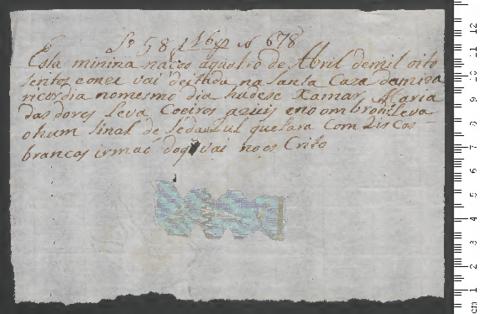 Nº 581 Nº 678
Esta minina naçeo aquatro de Abril demil oito
sentos eonze vai deitada na Santa Caza damize
ricordia nomesmo dia hadese Xamar Maria
das dores Leva Coeiros azuis eno ombro Leva
ohum sinal de seda azul quefara Com Discos
brancos irmao doque vai no es Crito